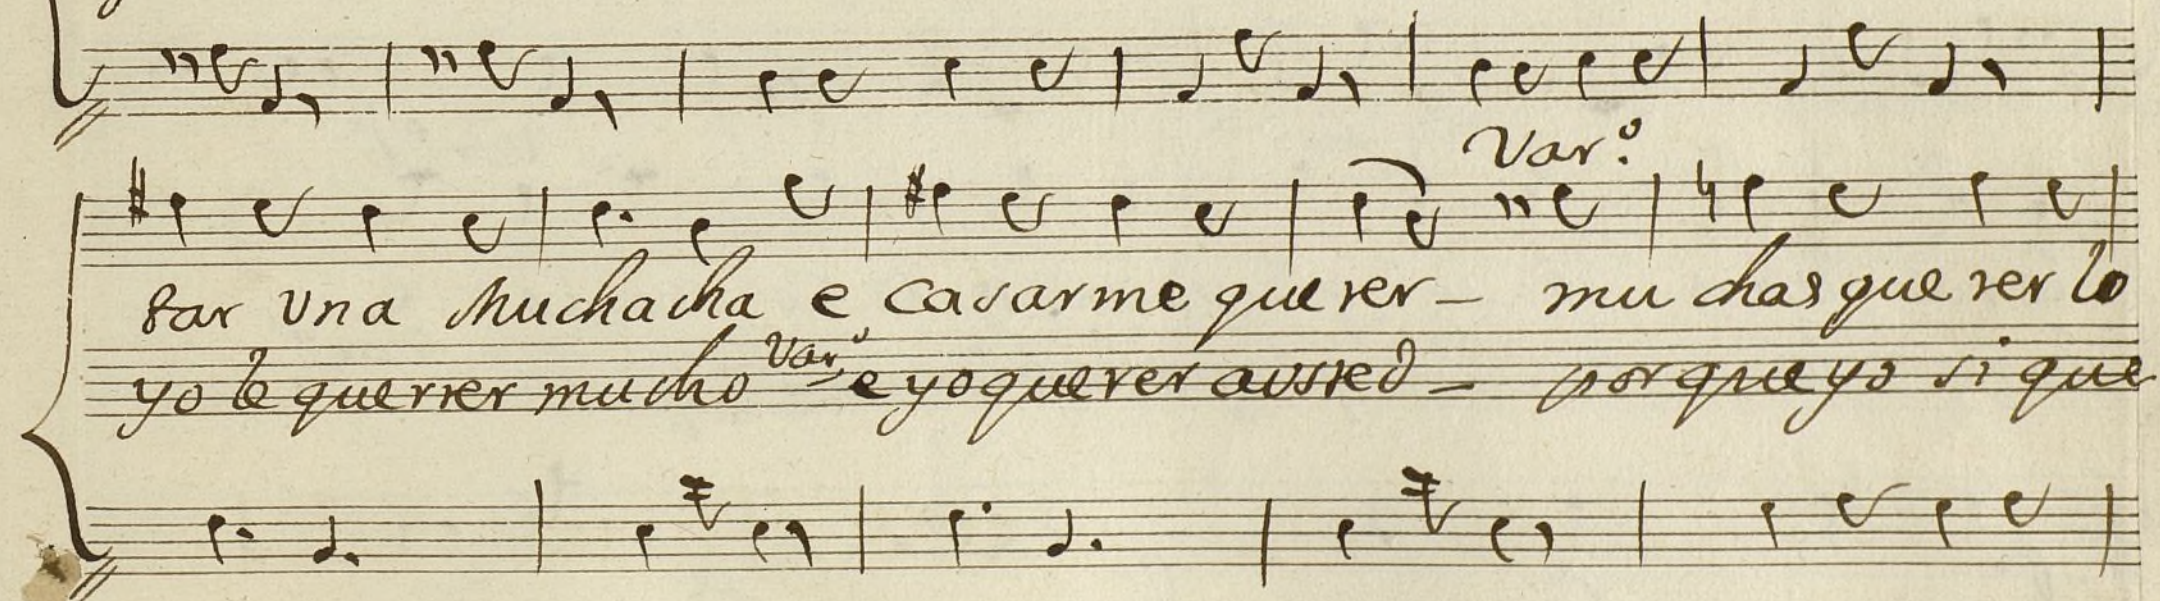 Var.º
tar una Muchacha e casarme querer – muchas querer lo
Var.º
yo le querrer mucho e yo querer a usted – porque yo si que